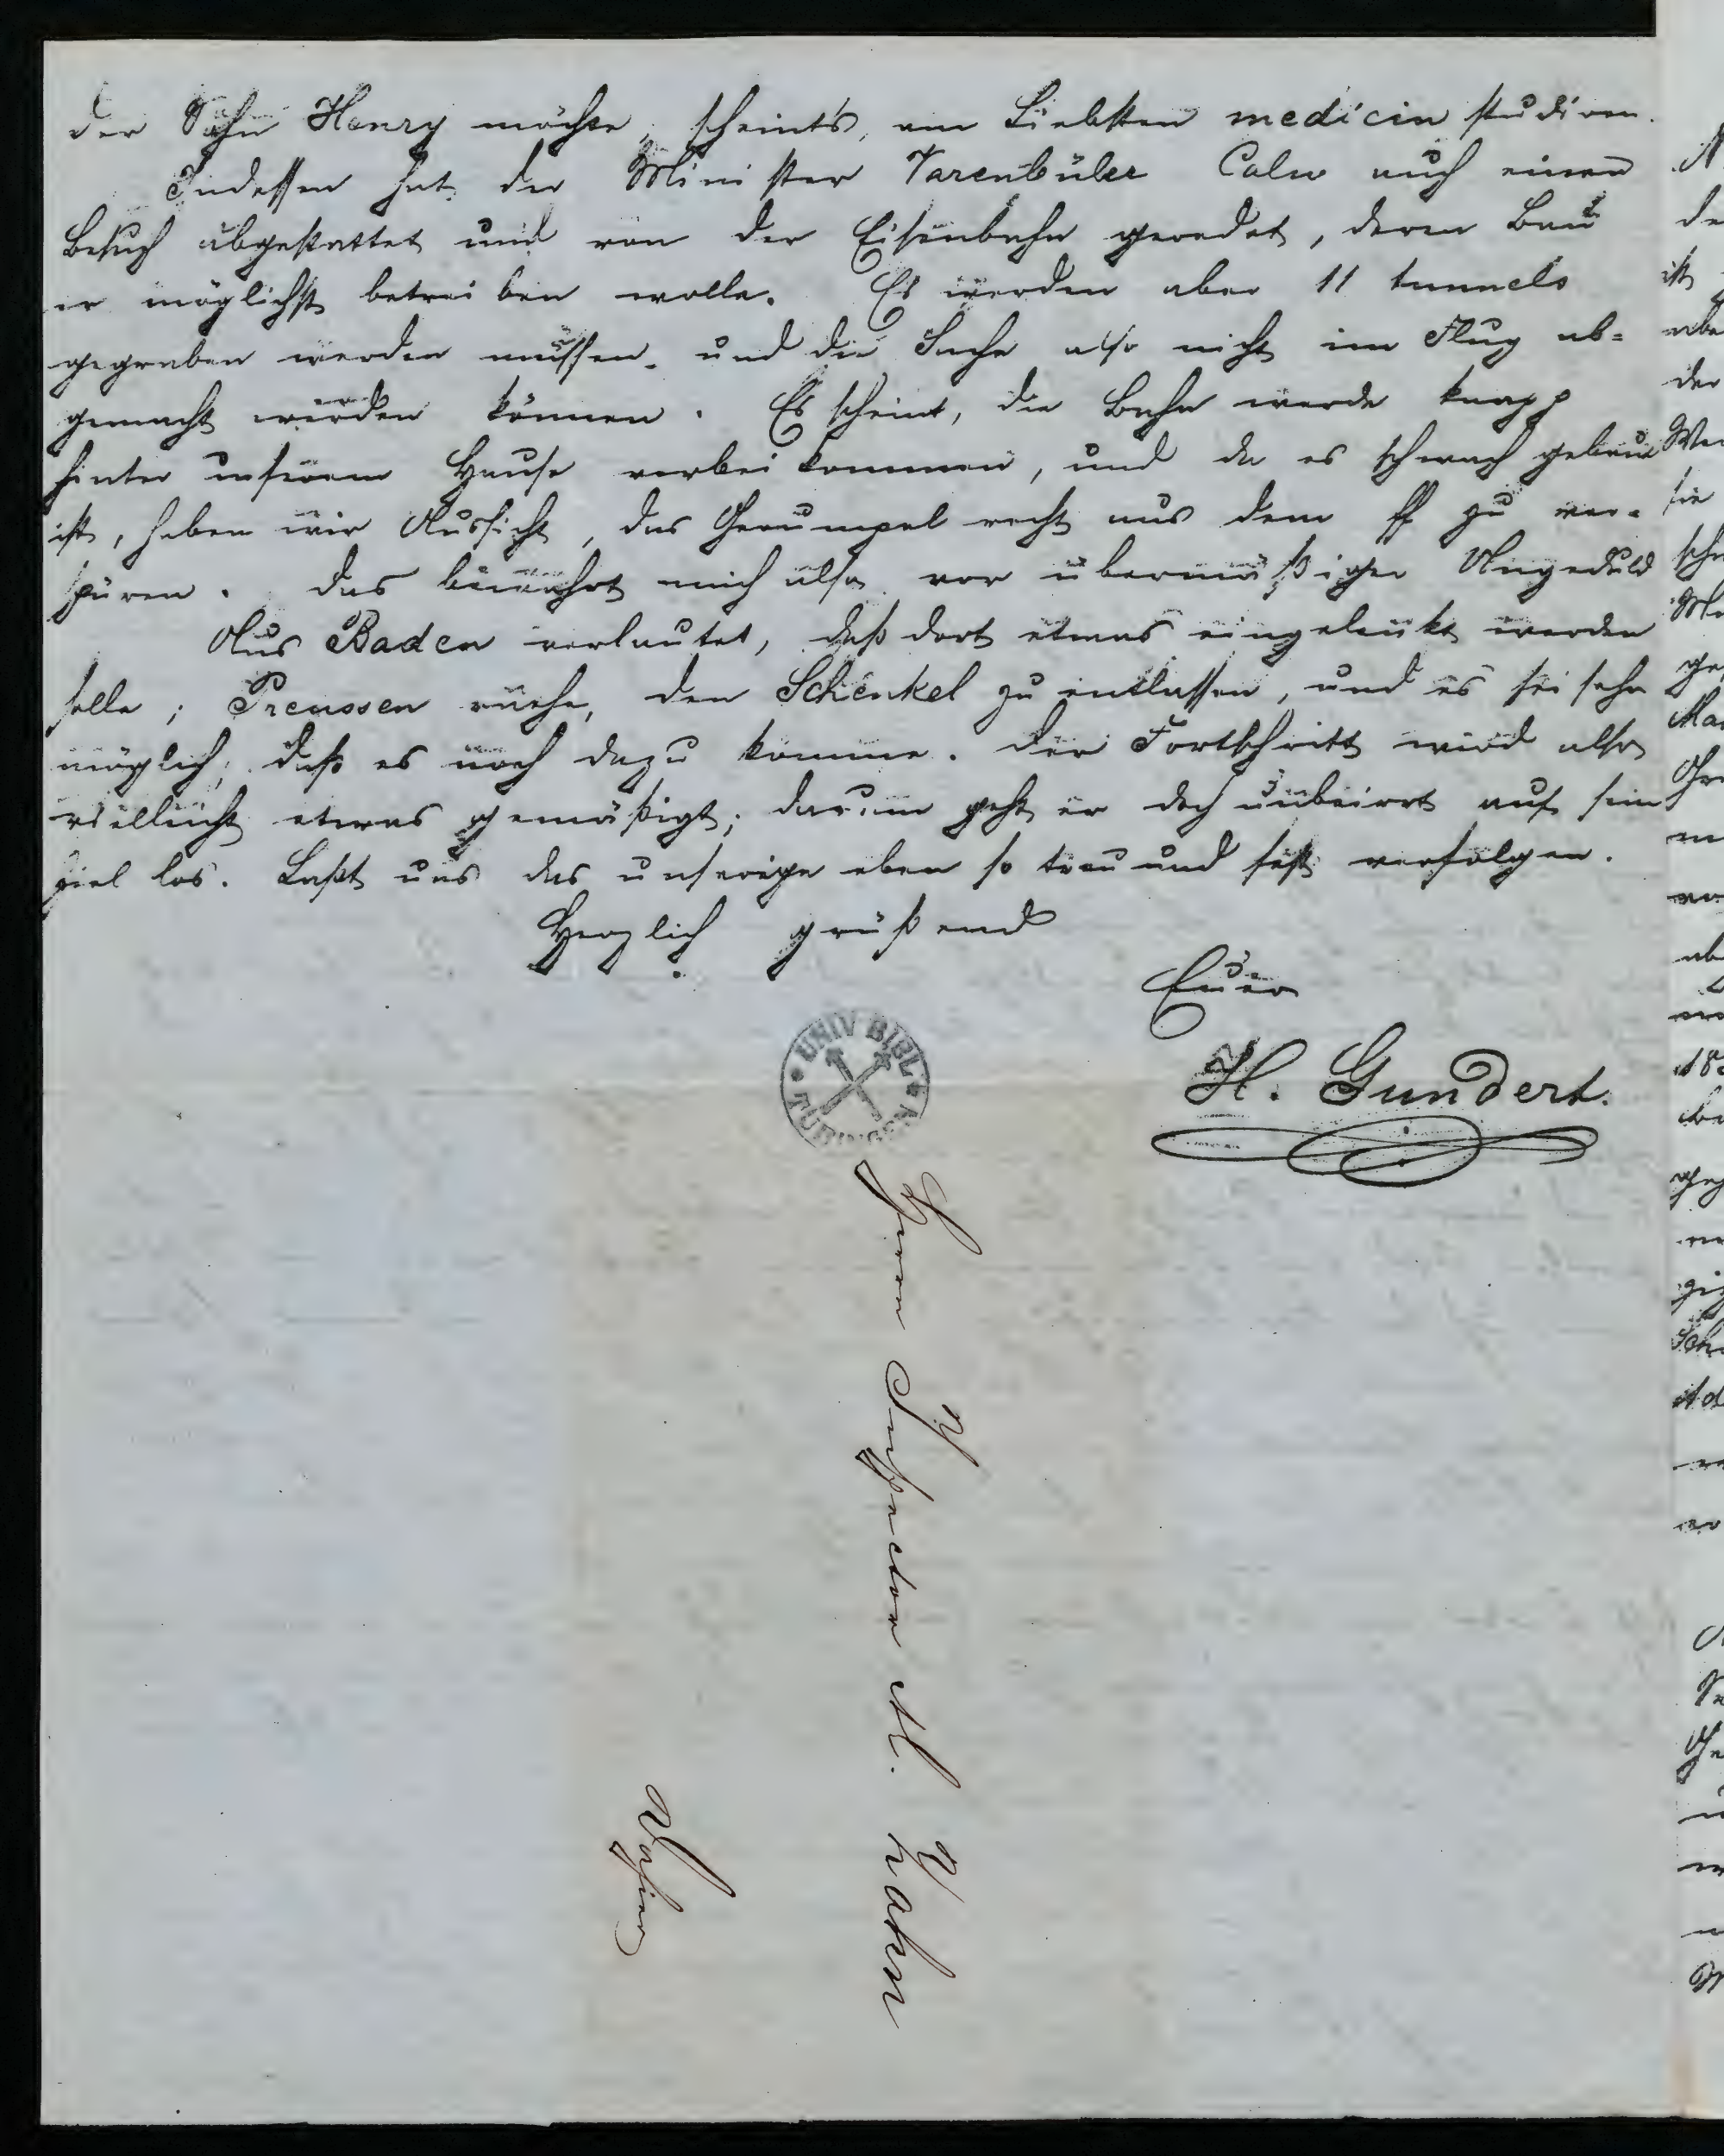 der Sohn Henry möchte, scheints, am Liebsten medicin studiren.
Indessen hat der Minister Varenbüler Calw auch einen
Besuch abgestattet und von der Eisenbahn geredet, deren Bau
er möglichst betreiben wolle. Es werden aber 11 tunnels
gegraben werden müssen, und die Sache also nicht im Flug ab-
gemacht werden können. Es scheint, die Bahn werde knapp
hinter unserem Hause vorbei kommen, und da es schwach gebaut
ist, haben wir Aussicht, das Gerumpel recht aus dem ff zu ver-
spüren. Das bewahrt mich also vor übermäßiger Ungeduld
Aus Baden verlautet, daß dort etwas eingelenkt werden
solle; Preussen rathe, den Schenkel zu entlassen, und es sei sehr
möglich, daß es noch dazu komme. Der Fortschritt wird also
vielleicht etwas gemäßigt; darum geht er doch unbeirrt auf sein
Ziel los. Laßt uns das unserige eben so treu und fest verfolgen.
Herzlich grüßend
Euer
H. Gundert.
UNIV BIBL
TÜBINGEN
Herrn Inspector